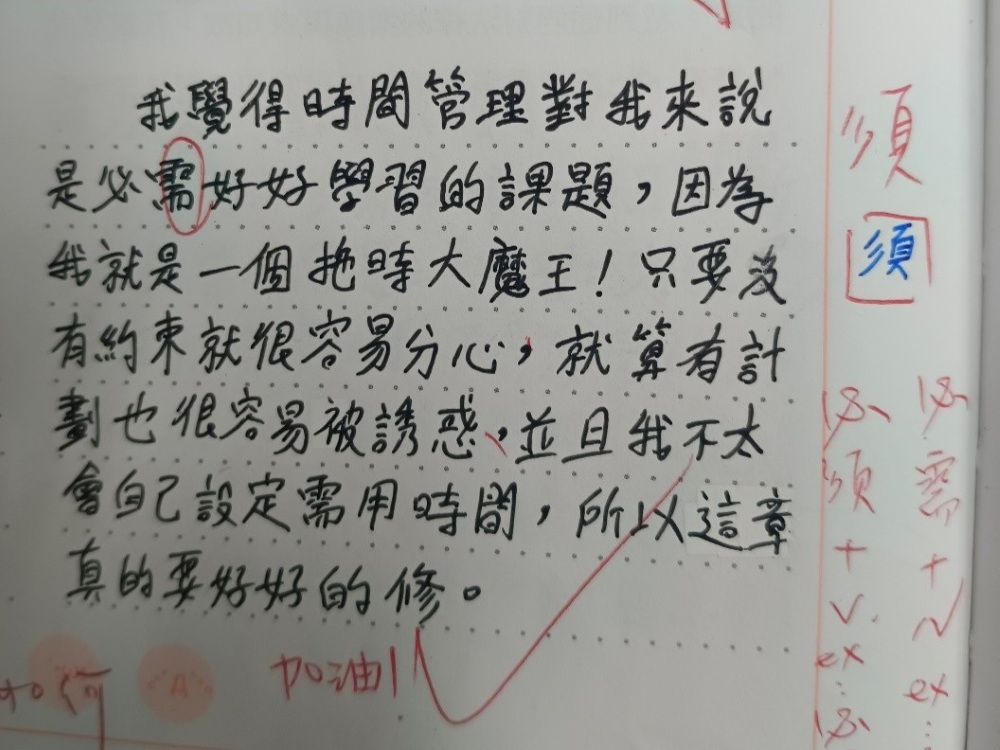 我覺得時間管理對我來說
是必需好好學習的課題，因為
我就是一個拖時大魔王！只要沒
有約束就很容易分心，就算有計
劃也很容易被誘惑，並且我不太
會自己設定需用時間，所以這章
真的要好好的修。
加油！
如何
A
須
須
必須
+
V.
ex
:
必
必需
+
N
ex
: